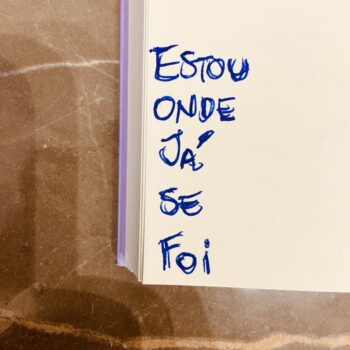 ESTOU
ONDE
JÁ
SE
FOI